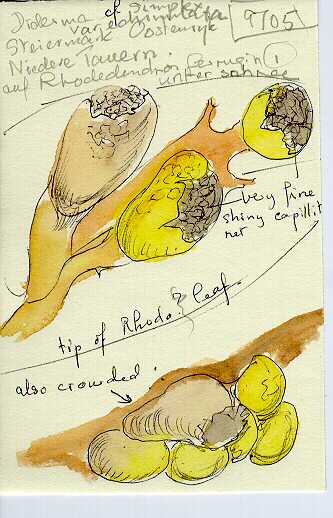 Diderma cf simplex
9705
Steiermark Oostenrijk
Niedere Tauern.
auf Rhododendron ferrugin 1
unter schnee
very fine
shiny capillit
net
tip of Rhodo? leaf.
also crowded.